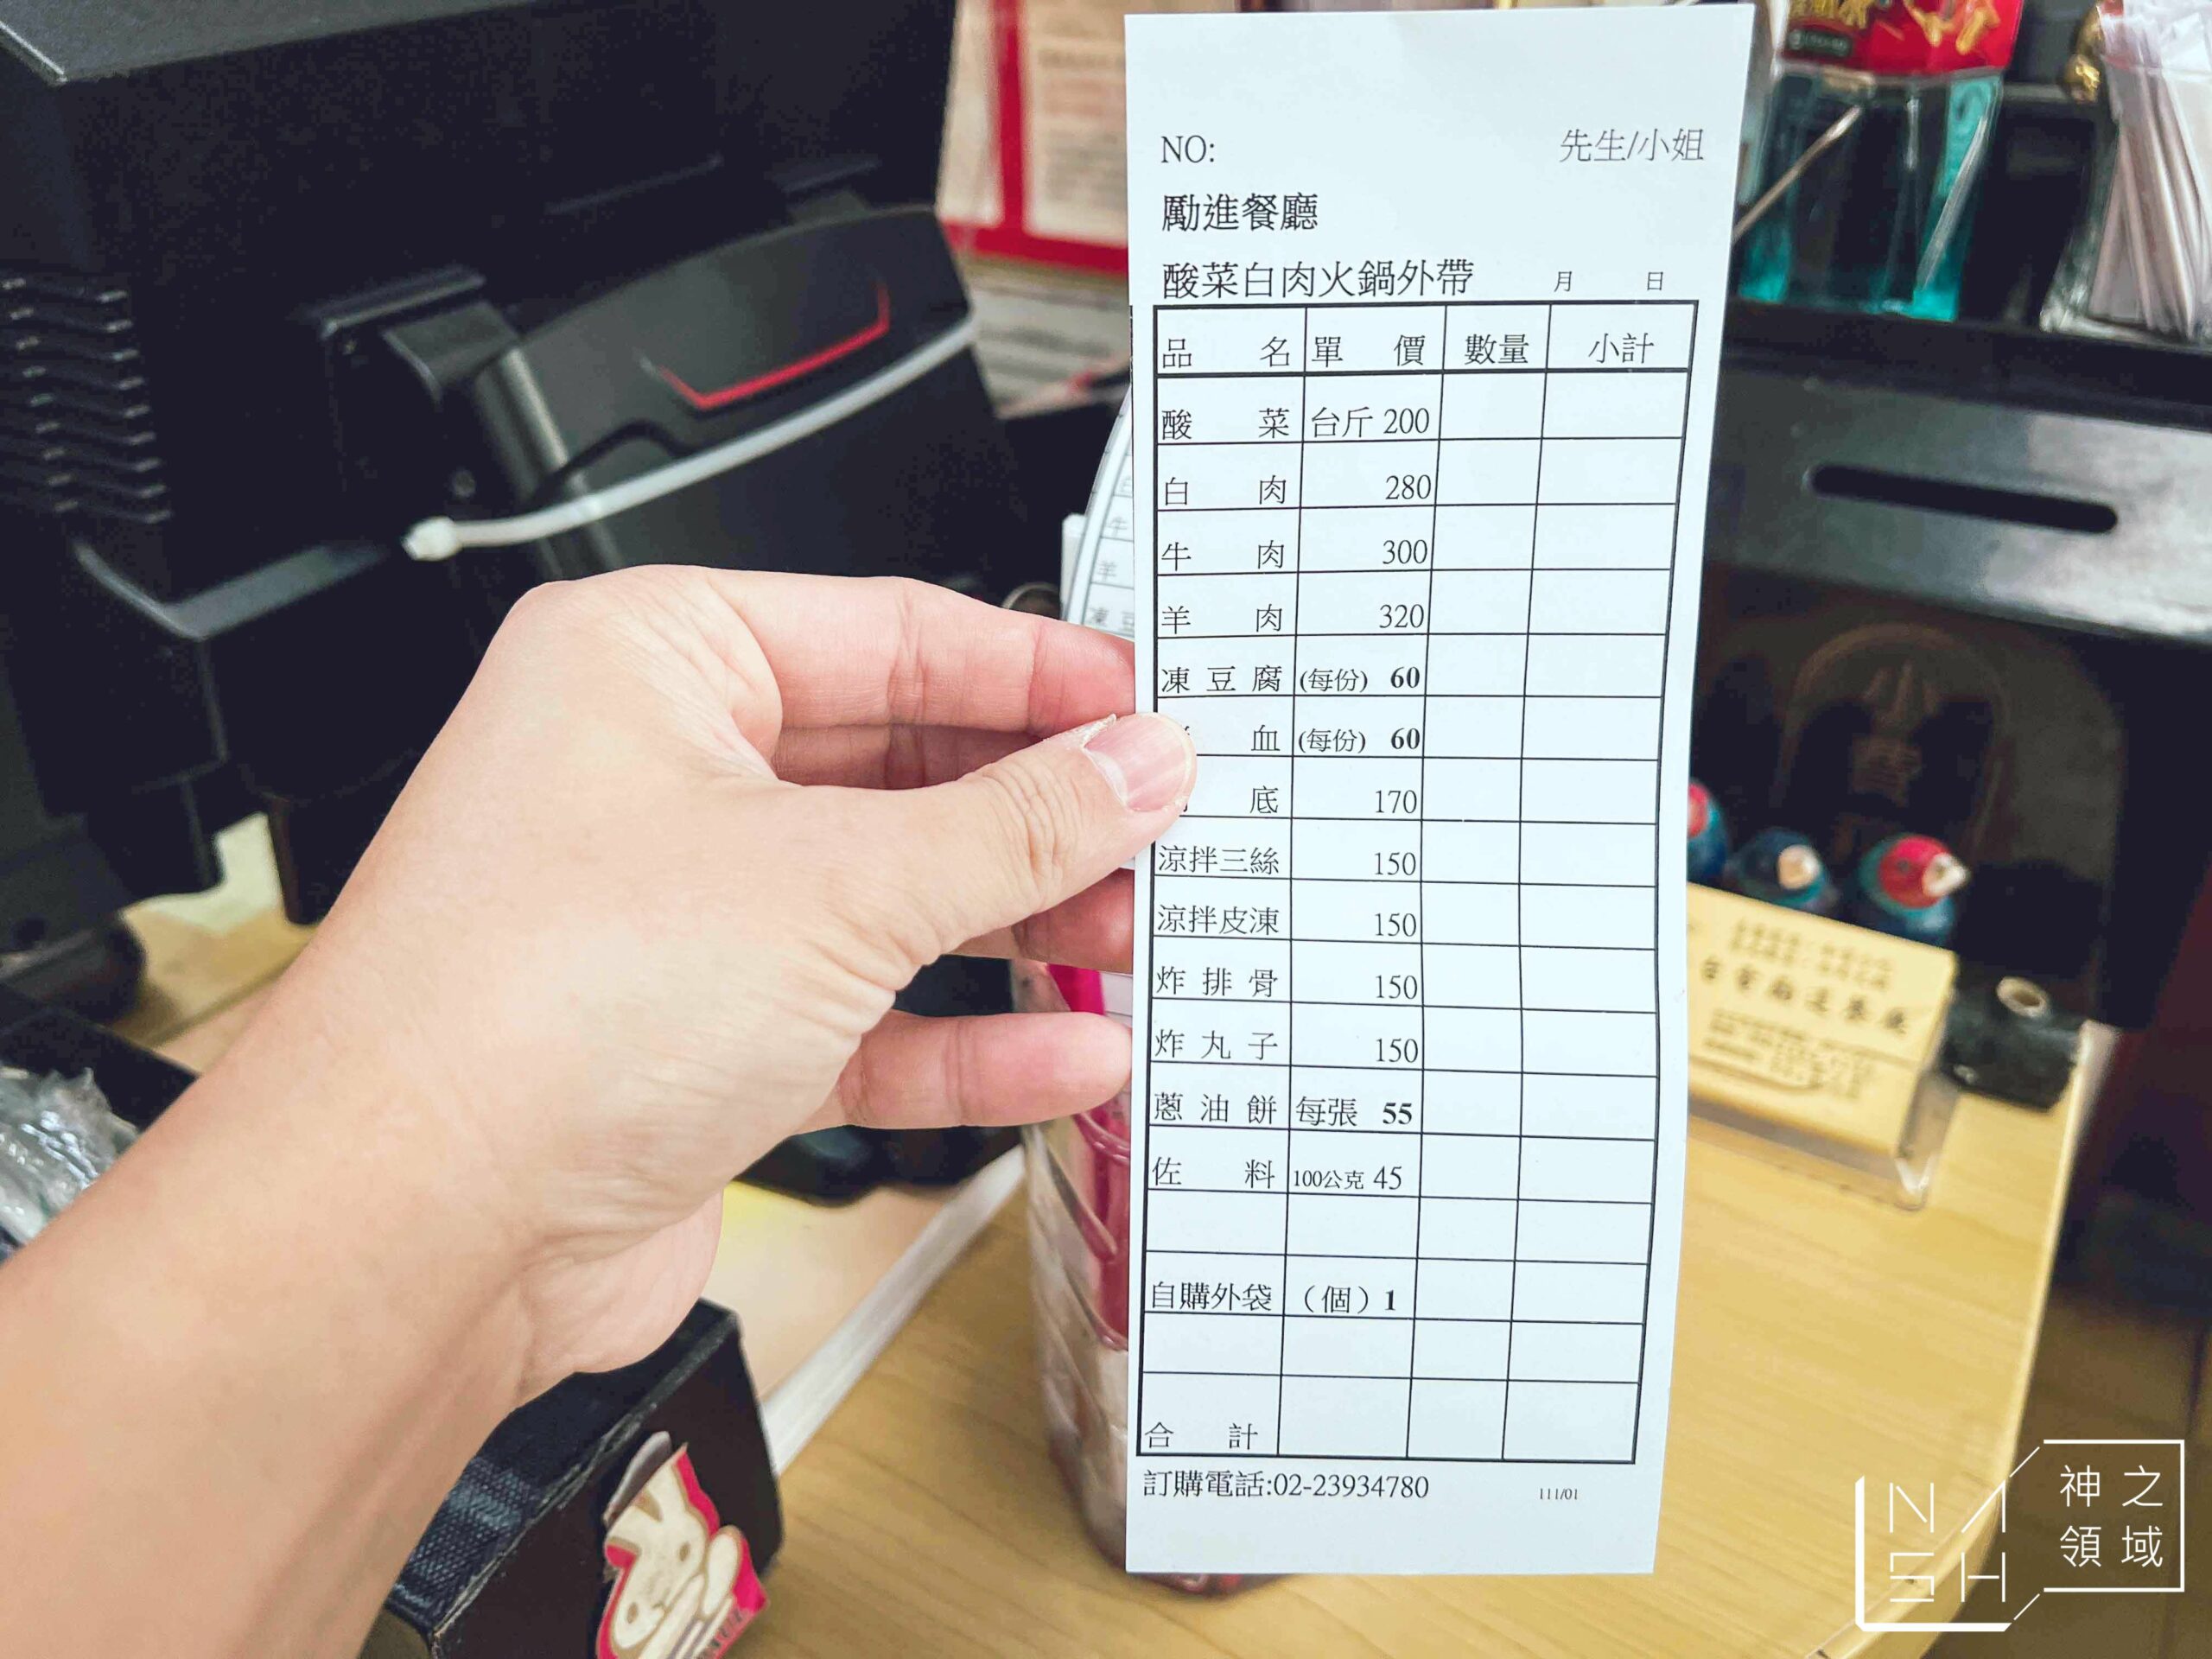 NO: 先生/小姐
勵進餐廳
酸菜白肉火鍋外帶 月 日
品名 單價 數量 小計
酸菜 台斤 200
白肉 280
牛肉 300
羊肉 320
凍豆腐 (每份) 60
血 (每份) 60
底 170
涼拌三絲 150
涼拌皮凍 150
炸排骨 150
炸丸子 150
蔥油餅 每張 55
佐料 100公克 45
自購外袋 （個）1
合計
訂購電話:02-23934780 111/01
NASH 神之領域